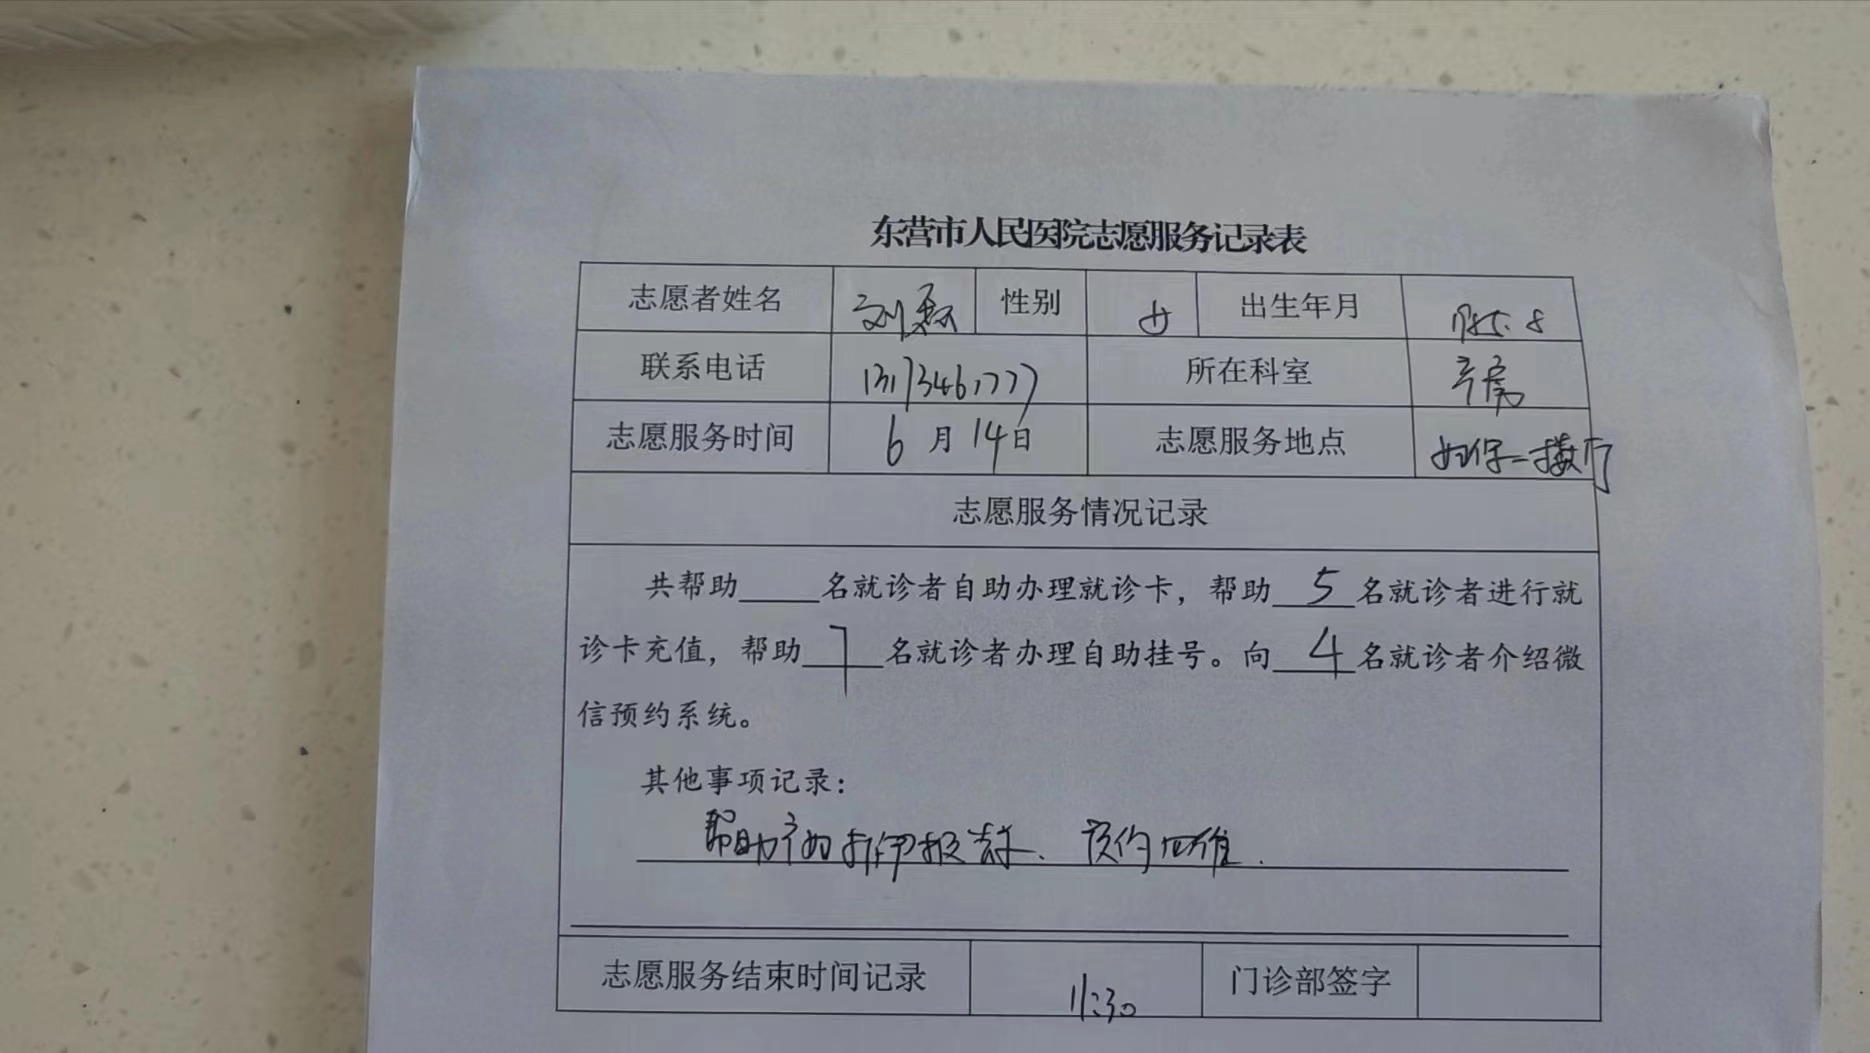 东营市人民医院志愿服务记录表
志愿者姓名 刘 性别 女 出生年月 1985.8
联系电话 13173461777 所在科室 产房
志愿服务时间 6月14日 志愿服务地点 妇保一楼大厅
志愿服务情况记录
共帮助____名就诊者自助办理就诊卡，帮助 5 名就诊者进行就
诊卡充值，帮助 7 名就诊者办理自助挂号。向 4 名就诊者介绍微
信预约系统。
其他事项记录：
帮助产妇打印报告、预约四维.
志愿服务结束时间记录 11:30 门诊部签字